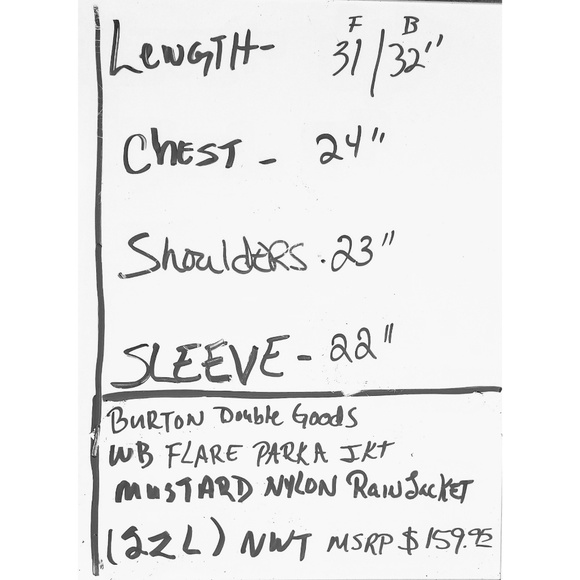 F B
LENGTH- 31/32"
CHEST - 24"
ShouldERS. 23"
SLEEVE - 22"
BURTON Double Goods
WB FLARE PARKA JKT
MUSTARD NYLON RainJacket
(SZ L) NWT MSRP $159.95